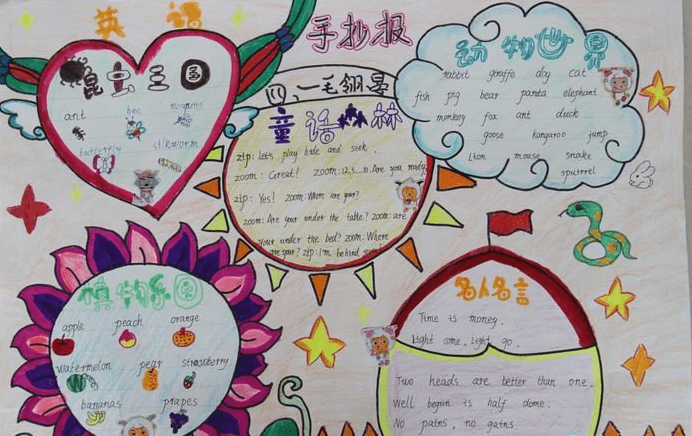 英 语
手抄报
昆虫王国
ant bee mosquito
butterfly silkworm
一毛
童话森林
zip: Let's play hide and seek.
zoom: Great! zoom: 1.2.3...10. Are you ready
zip: Yes! zoom: Where are your?
zoom: Are your under the table? zoom: are
your under the bed? zoom: Where
are your? zip: I'm behind
动物世界
rabbit giraffe dog cat
fish pig bear panta elephant
monkey fox ant duck
goose kangaroo jump
Lion mouse snake
squirrel
植物乐园
apple peach orange
watermelon pear strawberry
bananas grapes
名人名言
Time is money.
Light come, Light go.
Two heads are better than one.
Well begun is half dome.
No pains, no gains